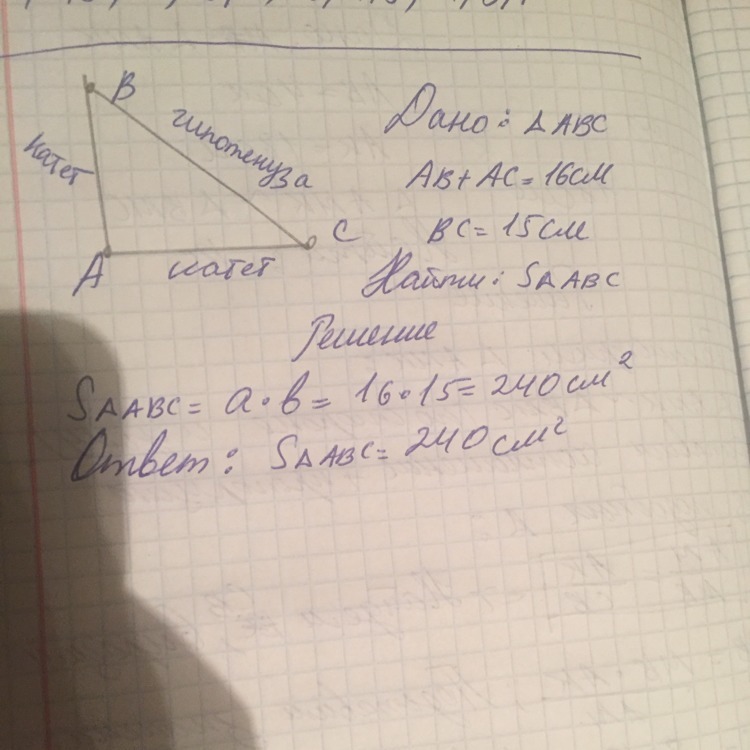 B
катет
гипотенуза
A
катет
C
Дано: △ABC
AB+AC=16см
BC=15см
Найти: S△ABC
Решение
S△ABC= a·b= 16·15=240см²
Ответ: S△ABC= 240см²